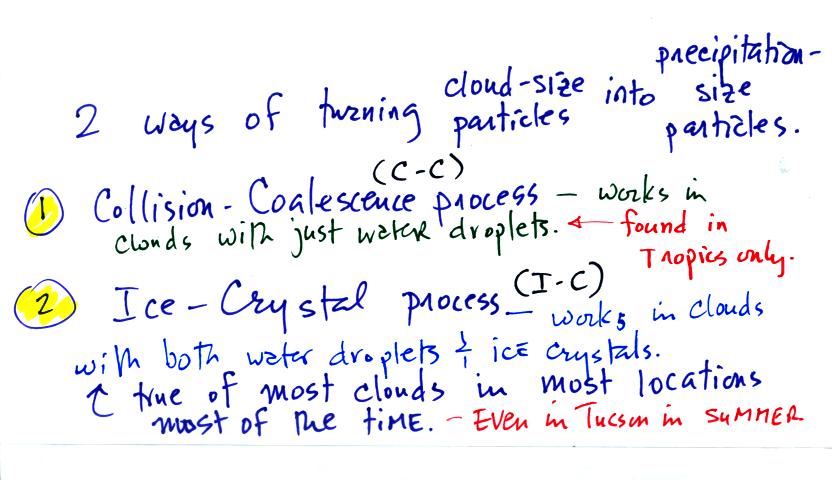 2 ways of turning cloud-size particles into precipitation-size particles.
(C-C)
1 Collision-Coalescence process – works in
clouds with just water droplets. ← found in
Tropics only.
2 Ice-Crystal process (I-C) – works in clouds
with both water droplets & ice crystals.
↑ true of most clouds in most locations
most of the time. – Even in Tucson in SUMMER